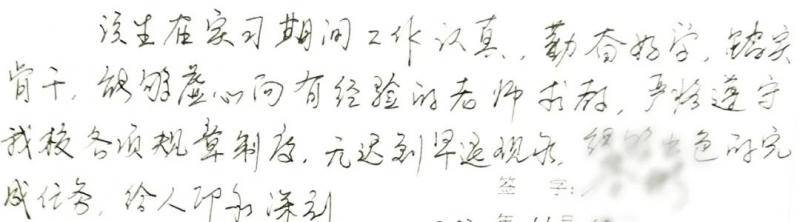 该生在实习期间工作认真,勤奋好学,踏实
肯干,能够虚心向有经验的老师求教,严格遵守
我校各项规章制度,无迟到早退现象,能够出色的完
成任务,给人印象深刻
签 字: